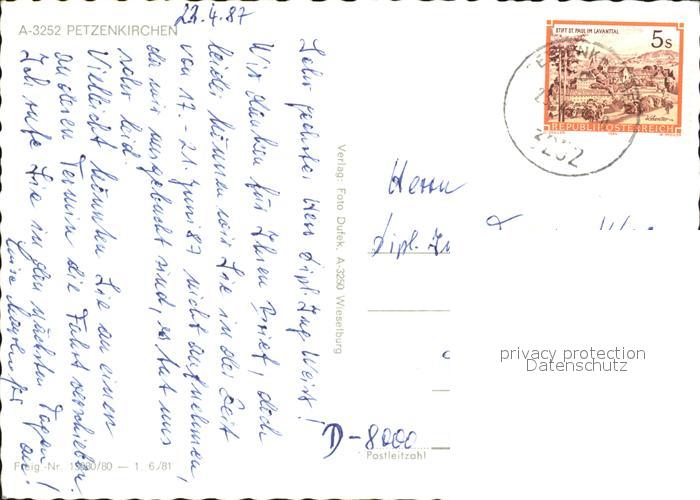 A-3252 PETZENKIRCHEN
23.4.87
Sehr geehrter Herr Dipl. Ing.
Wir danken für Ihren Brief, doch
leider können wir Sie in der Zeit
von 17. - 21. Juni 87 nicht aufnehmen,
da wir ausgebucht sind, es tut uns
sehr leid.
Vielleicht könnten Sie an einen
anderen Termin die Fahrt verschieben.
Ich rufe Sie in den nächsten Tagen an!
Verlag: Foto Dufek, A-3250 Wieselburg
STIFT ST. PAUL IM LAVANTTAL
5 S
REPUBLIK ÖSTERREICH
3252
Herrn
Dipl. In
D-8000
Postleitzahl
privacy protection
Datenschutz
Freig.-Nr. /80 — 1. 6./81